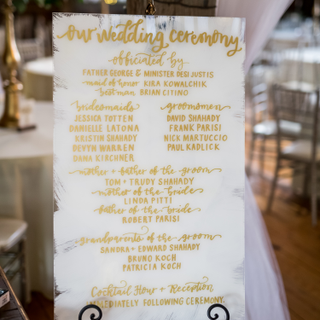 our wedding ceremony
officiated by
FATHER GEORGE & MINISTER DESI JUSTIS
maid of honor KIRA KOWALCHIK
best man BRIAN CITINO
bridesmaids
JESSICA TUTTEN
DANIELLE LATONA
KRISTIN SHAHADY
DEVYN WARREN
DANA KIRCHNER
groomsmen
DAVID SHAHADY
FRANK PARISI
NICK MARTUCCIO
PAUL KADLICK
mother + father of the groom
TOM + TRUDY SHAHADY
mother of the bride
LINDA PITTI
father of the bride
ROBERT PARISI
grandparents of the groom
SANDRA + EDWARD SHAHADY
BRUNO KOCH
PATRICIA KOCH
Cocktail Hour + Reception
IMMEDIATELY FOLLOWING CEREMONY